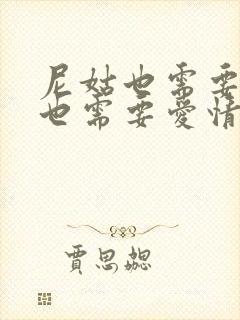 尼姑也需要
也需要愛情
賈思勰